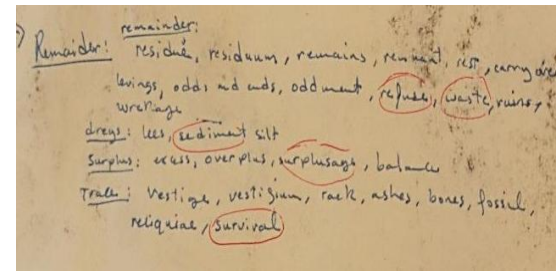 remainder:
Remaider: residue, residuum, remains, remnant, rest, carry over
levings, odds and ends, oddment, refuse, waste, ruins,
wreckage
dregs: lees, sediment silt
Surplus: excess, overplus, surplusage, balance
Trace: vestige, vestigium, rack, ashes, bones, fossil,
reliquiae, survival